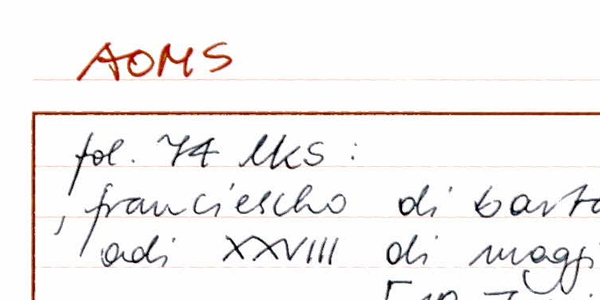 AOMS
fol. 74 lks :
franciescho di barto
adi XXVIII di maggi